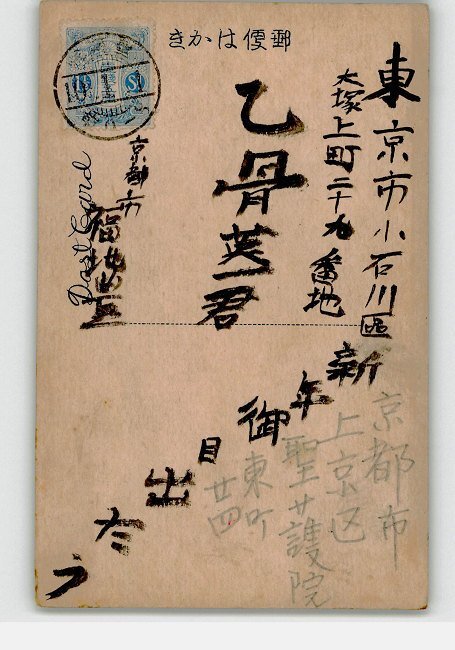 郵便はかき
東京市小石川區
大塚上町二十九番地
乙骨英一君
京都市
Post Card
新年御目出たう
京都市
上京区
聖護院
東町
廿四